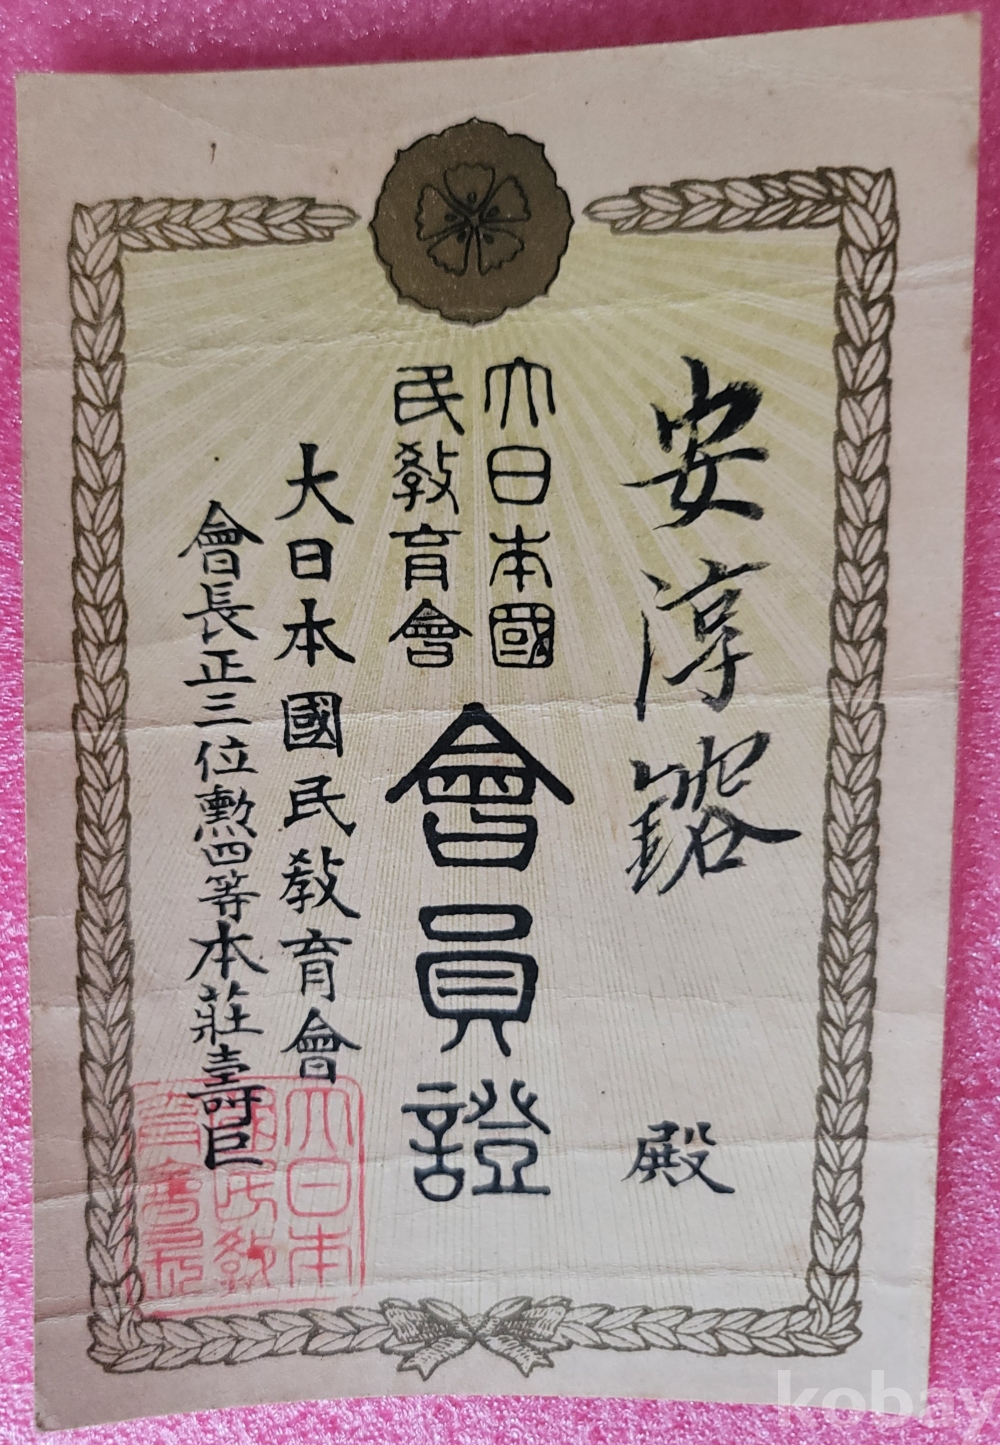 安淳鎔 殿
大日本國
民敎育會
會員證
大日本國民敎育會
會長正三位勲四等本莊壽巨
大日本
國民敎
育會長
kobay